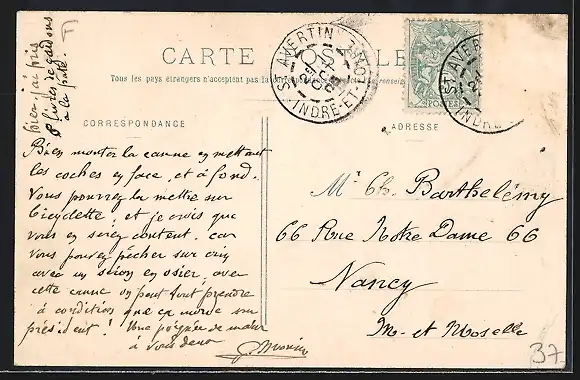 CARTE POSTALE
Tous les pays étrangers n'acceptent pas la
CORRESPONDANCE
ADRESSE
ST AVERTIN
INDRE-ET-LOIRE
POSTES
ST AVERTIN
INDRE
bien j'ai pris
à la pate.
Bien monter la canne en mettant
les coches en face, et à fond.
Vous pourrez la mettre sur
bicyclette, et je crois que
vous en serez content. car
vous pouvez pêcher sur crin
avec un scion en osier. avec
cette canne on peut tout prendre
à condition que ça morde mon
président! Une poignée de main
à vous deux
Mr Ch. Barthelémy
66 Rue Notre Dame 66
Nancy
M- et Moselle
37